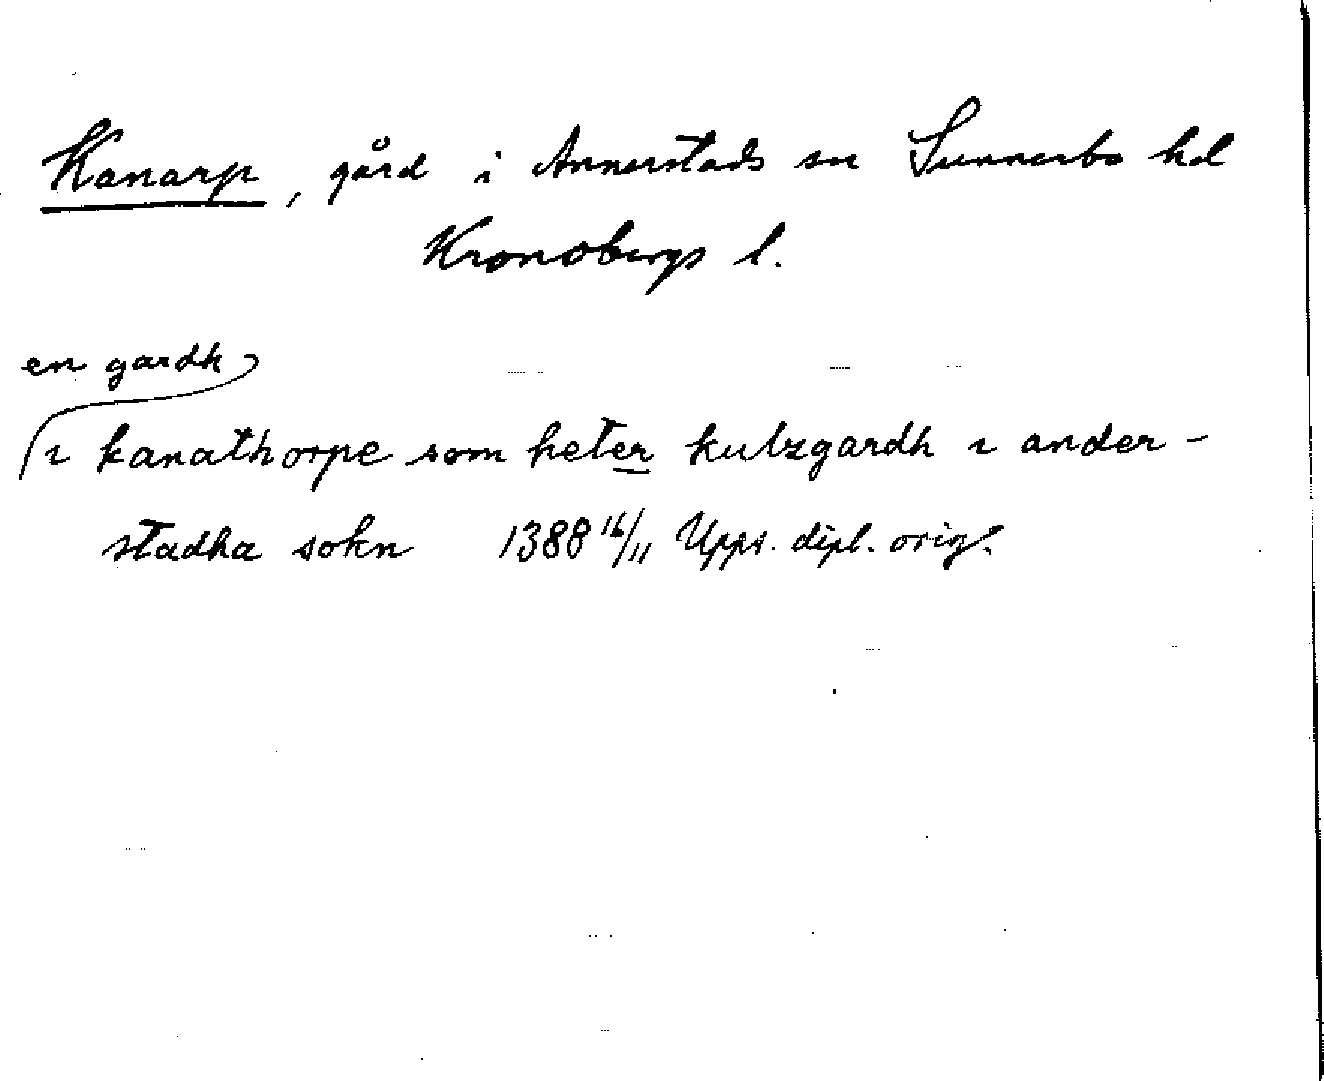 Kanarp, gård i Annerstads sn Sunnerbo hd
Kronobergs l.
en gardh
ı kanathorpe som heter kulzgardh ı ander-
stadha sokn 1388 16/11 Upps. dipl. orig.